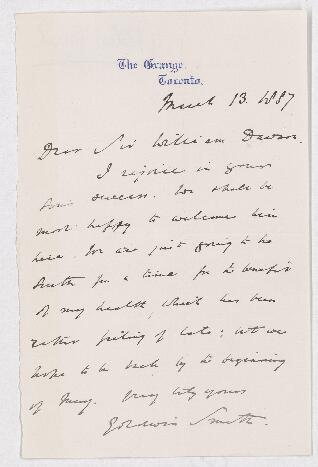 The Grange.
Toronto.
March 13. 1887
Dear Sir William Dawson.
I rejoice in your
son's success. We shall be
most happy to welcome him
here. We are just going to the
South for a time for the benefit
of my health, which has been
rather failing of late; but we
hope to be back by the beginning
of May. Very truly yours
Goldwin Smith.